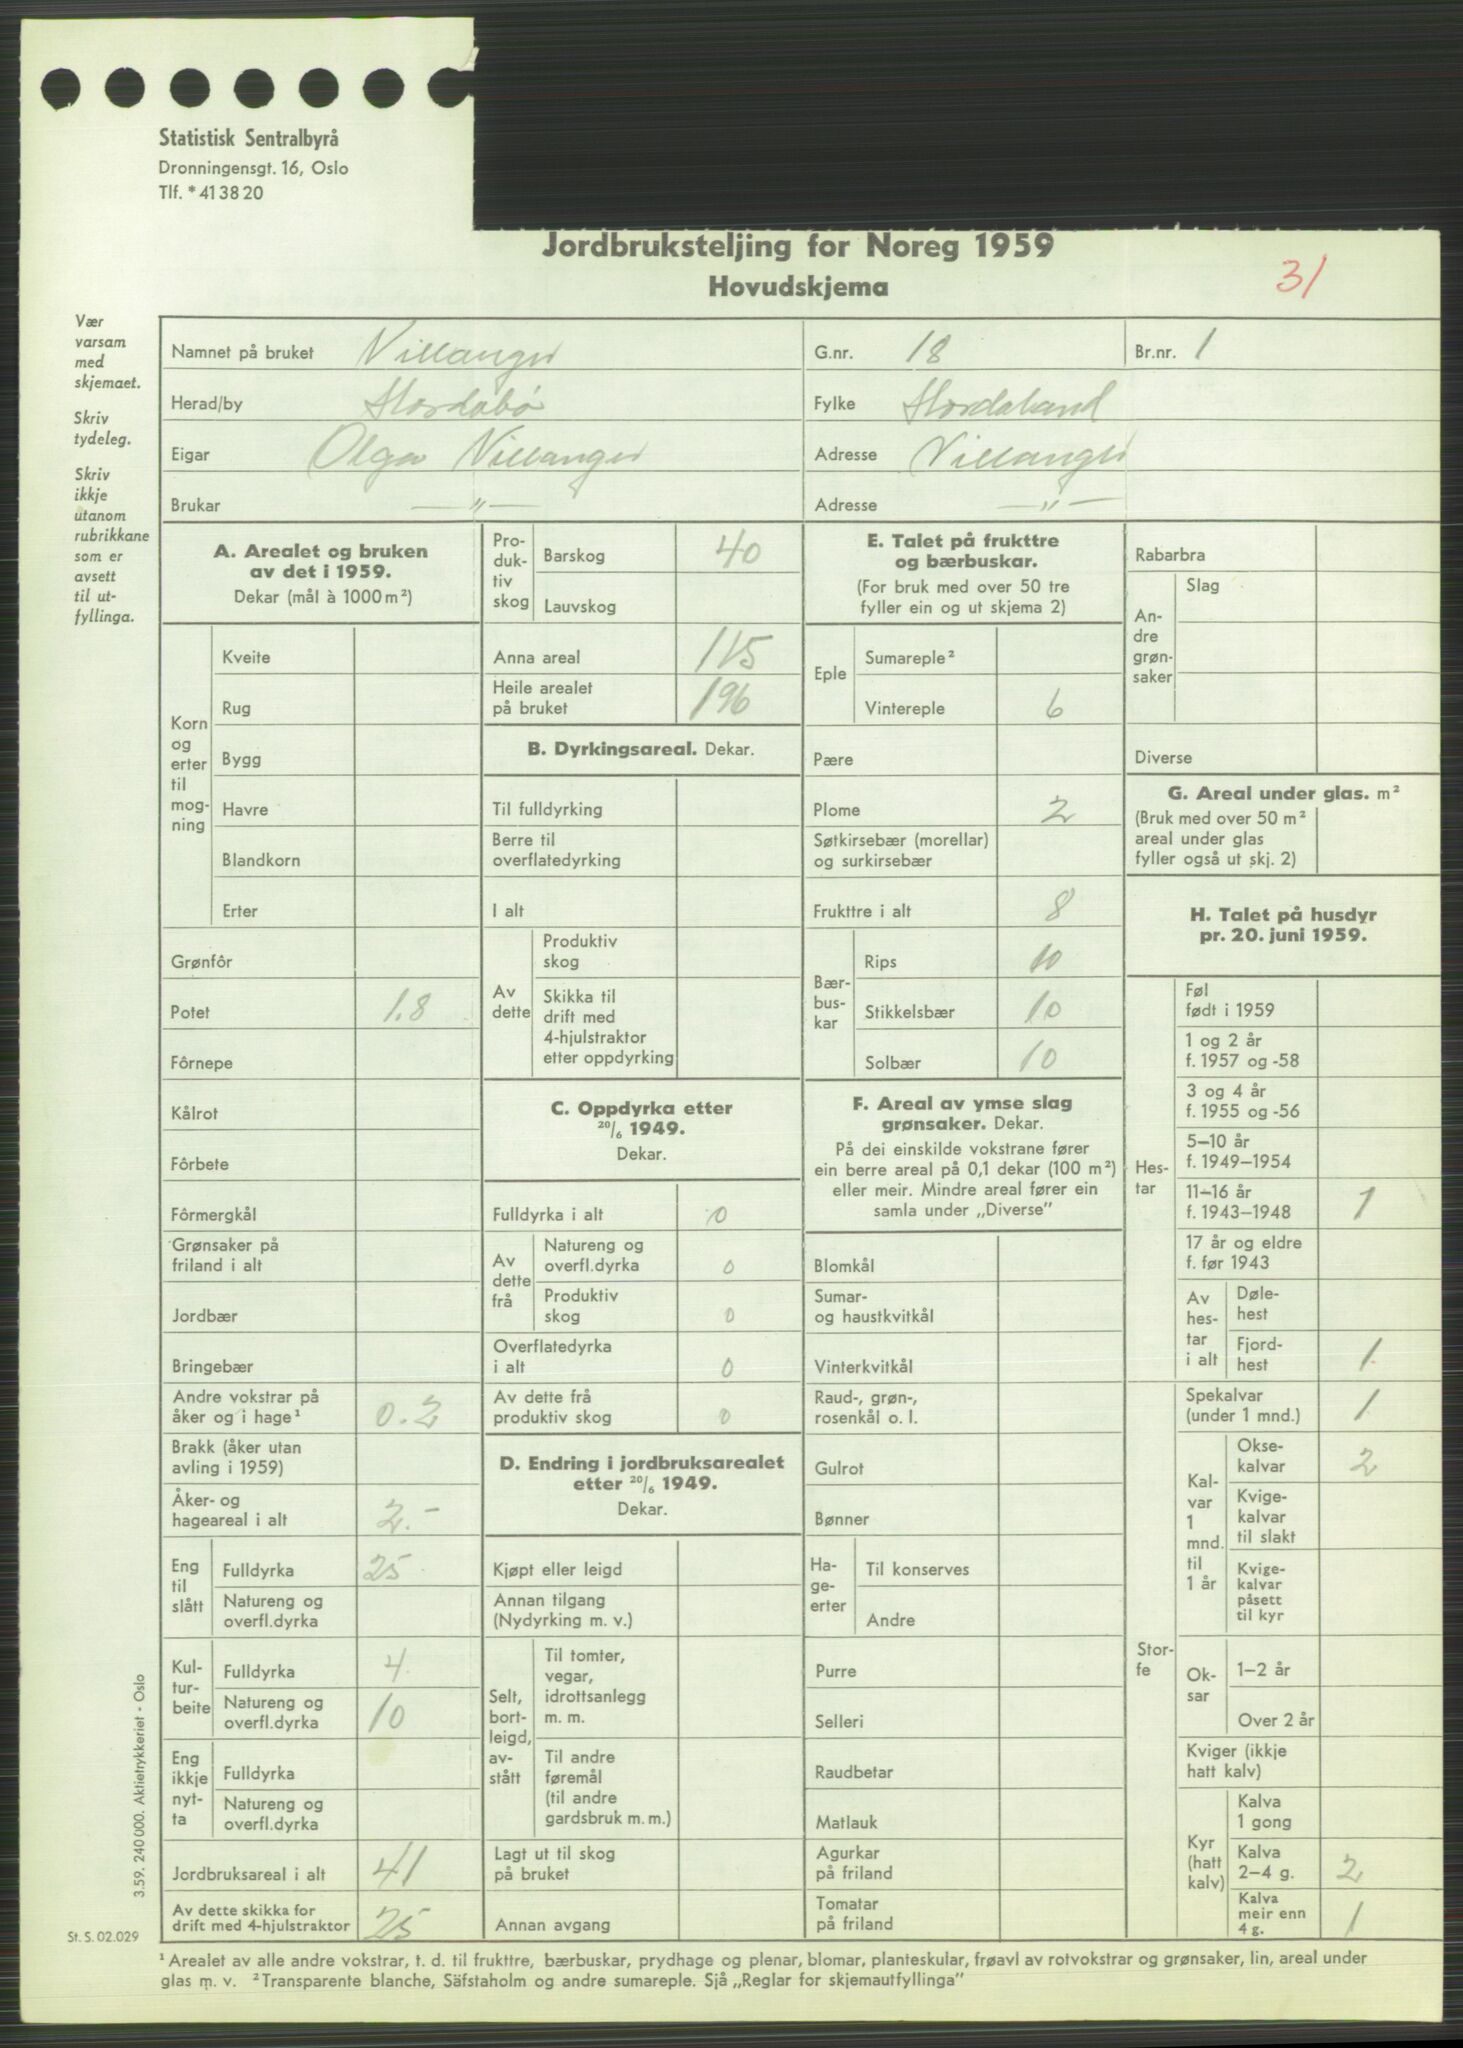 Statistisk Sentralbyrå
Dronningensgt. 16, Oslo
Tlf. * 41 38 20
Jordbruksteljing for Noreg 1959
Hovudskjema
31
Vær
varsam
med
skjemaet.
Skriv
tydeleg.
Skriv
ikkje
utanom
rubrikkane
som er
avsett
til ut-
fyllinga.
Namnet på bruket Villanger G.nr. 18 Br.nr. 1
Herad/by Hordabø Fylke Hordaland
Eigar Olga Villanger Adresse Villanger
Brukar — " — Adresse — " —
A. Arealet og bruken
av det i 1959.
Dekar (mål à 1000 m²)
Korn
og
erter
til
mog-
ning
Kveite
Rug
Bygg
Havre
Blandkorn
Erter
Grønfôr
Potet 1.8
Fôrnepe
Kålrot
Fôrbete
Fôrmergkål
Grønsaker på
friland i alt
Jordbær
Bringebær
Andre vokstrar på
åker og i hage¹ 0.2
Brakk (åker utan
avling i 1959)
Åker- og
hageareal i alt 2.-
Eng
til
slått
Fulldyrka 25
Natureng og
overfl.dyrka
Kul-
tur-
beite
Fulldyrka 4
Natureng og
overfl.dyrka 10
Eng
ikkje
nyt-
ta
Fulldyrka
Natureng og
overfl.dyrka
Jordbruksareal i alt 41
Av dette skikka for
drift med 4-hjulstraktor 25
Pro-
duk-
tiv
skog
Barskog 40
Lauvskog
Anna areal 115
Heile arealet
på bruket 196
B. Dyrkingsareal. Dekar.
Til fulldyrking
Berre til
overflatedyrking
I alt
Av
dette
Produktiv
skog
Skikka til
drift med
4-hjulstraktor
etter oppdyrking
C. Oppdyrka etter
20/6 1949.
Dekar.
Fulldyrka i alt 0
Av
dette
frå
Natureng og
overfl.dyrka 0
Produktiv
skog 0
Overflatedyrka
i alt 0
Av dette frå
produktiv skog 0
D. Endring i jordbruksarealet
etter 20/6 1949.
Dekar.
Kjøpt eller leigd
Annan tilgang
(Nydyrking m. v.)
Selt,
bort-
leigd,
av-
stått
Til tomter,
vegar,
idrottsanlegg
m. m.
Til andre
føremål
(til andre
gardsbruk m. m.)
Lagt ut til skog
på bruket
Annan avgang
E. Talet på frukttre
og bærbuskar.
(For bruk med over 50 tre
fyller ein og ut skjema 2)
Eple
Sumareple²
Vintereple 6
Pære
Plome 2
Søtkirsebær (morellar)
og surkirsebær
Frukttre i alt 8
Bær-
bus-
kar
Rips 10
Stikkelsbær 10
Solbær 10
F. Areal av ymse slag
grønsaker. Dekar.
På dei einskilde vokstrane fører
ein berre areal på 0,1 dekar (100 m²)
eller meir. Mindre areal fører ein
samla under „Diverse"
Blomkål
Sumar-
og haustkvitkål
Vinterkvitkål
Raud-, grøn-,
rosenkål o. l.
Gulrot
Bønner
Ha-
ge-
erter
Til konserves
Andre
Purre
Selleri
Raudbetar
Matlauk
Agurkar
på friland
Tomatar
på friland
Rabarbra
An-
dre
grøn-
saker
Slag
Diverse
G. Areal under glas. m²
(Bruk med over 50 m²
areal under glas
fyller også ut skj. 2)
H. Talet på husdyr
pr. 20. juni 1959.
Hes-
tar
Føl
født i 1959
1 og 2 år
f. 1957 og -58
3 og 4 år
f. 1955 og -56
5–10 år
f. 1949–1954
11–16 år
f. 1943–1948 1
17 år og eldre
f. før 1943
Av
hes-
tar
i alt
Døle-
hest
Fjord-
hest 1
Stor-
fe
Spekalvar
(under 1 mnd.) 1
Kal-
var
1
mnd.
til
1 år
Okse-
kalvar 2
Kvige-
kalvar
til slakt
Kvige-
kalvar
påsett
til kyr
Ok-
sar
1–2 år
Over 2 år
Kviger (ikkje
hatt kalv)
Kyr
(hatt
kalv)
Kalva
1 gong
Kalva
2–4 g. 2
Kalva
meir enn
4 g. 1
3.59. 240 000. Aktietrykkeriet - Oslo
St. S. 02.029
¹ Arealet av alle andre vokstrar, t. d. til frukttre, bærbuskar, prydhage og plenar, blomar, planteskular, frøavl av rotvokstrar og grønsaker, lin, areal under
glas m. v. ² Transparente blanche, Säfstaholm og andre sumareple. Sjå „Reglar for skjemautfyllinga"